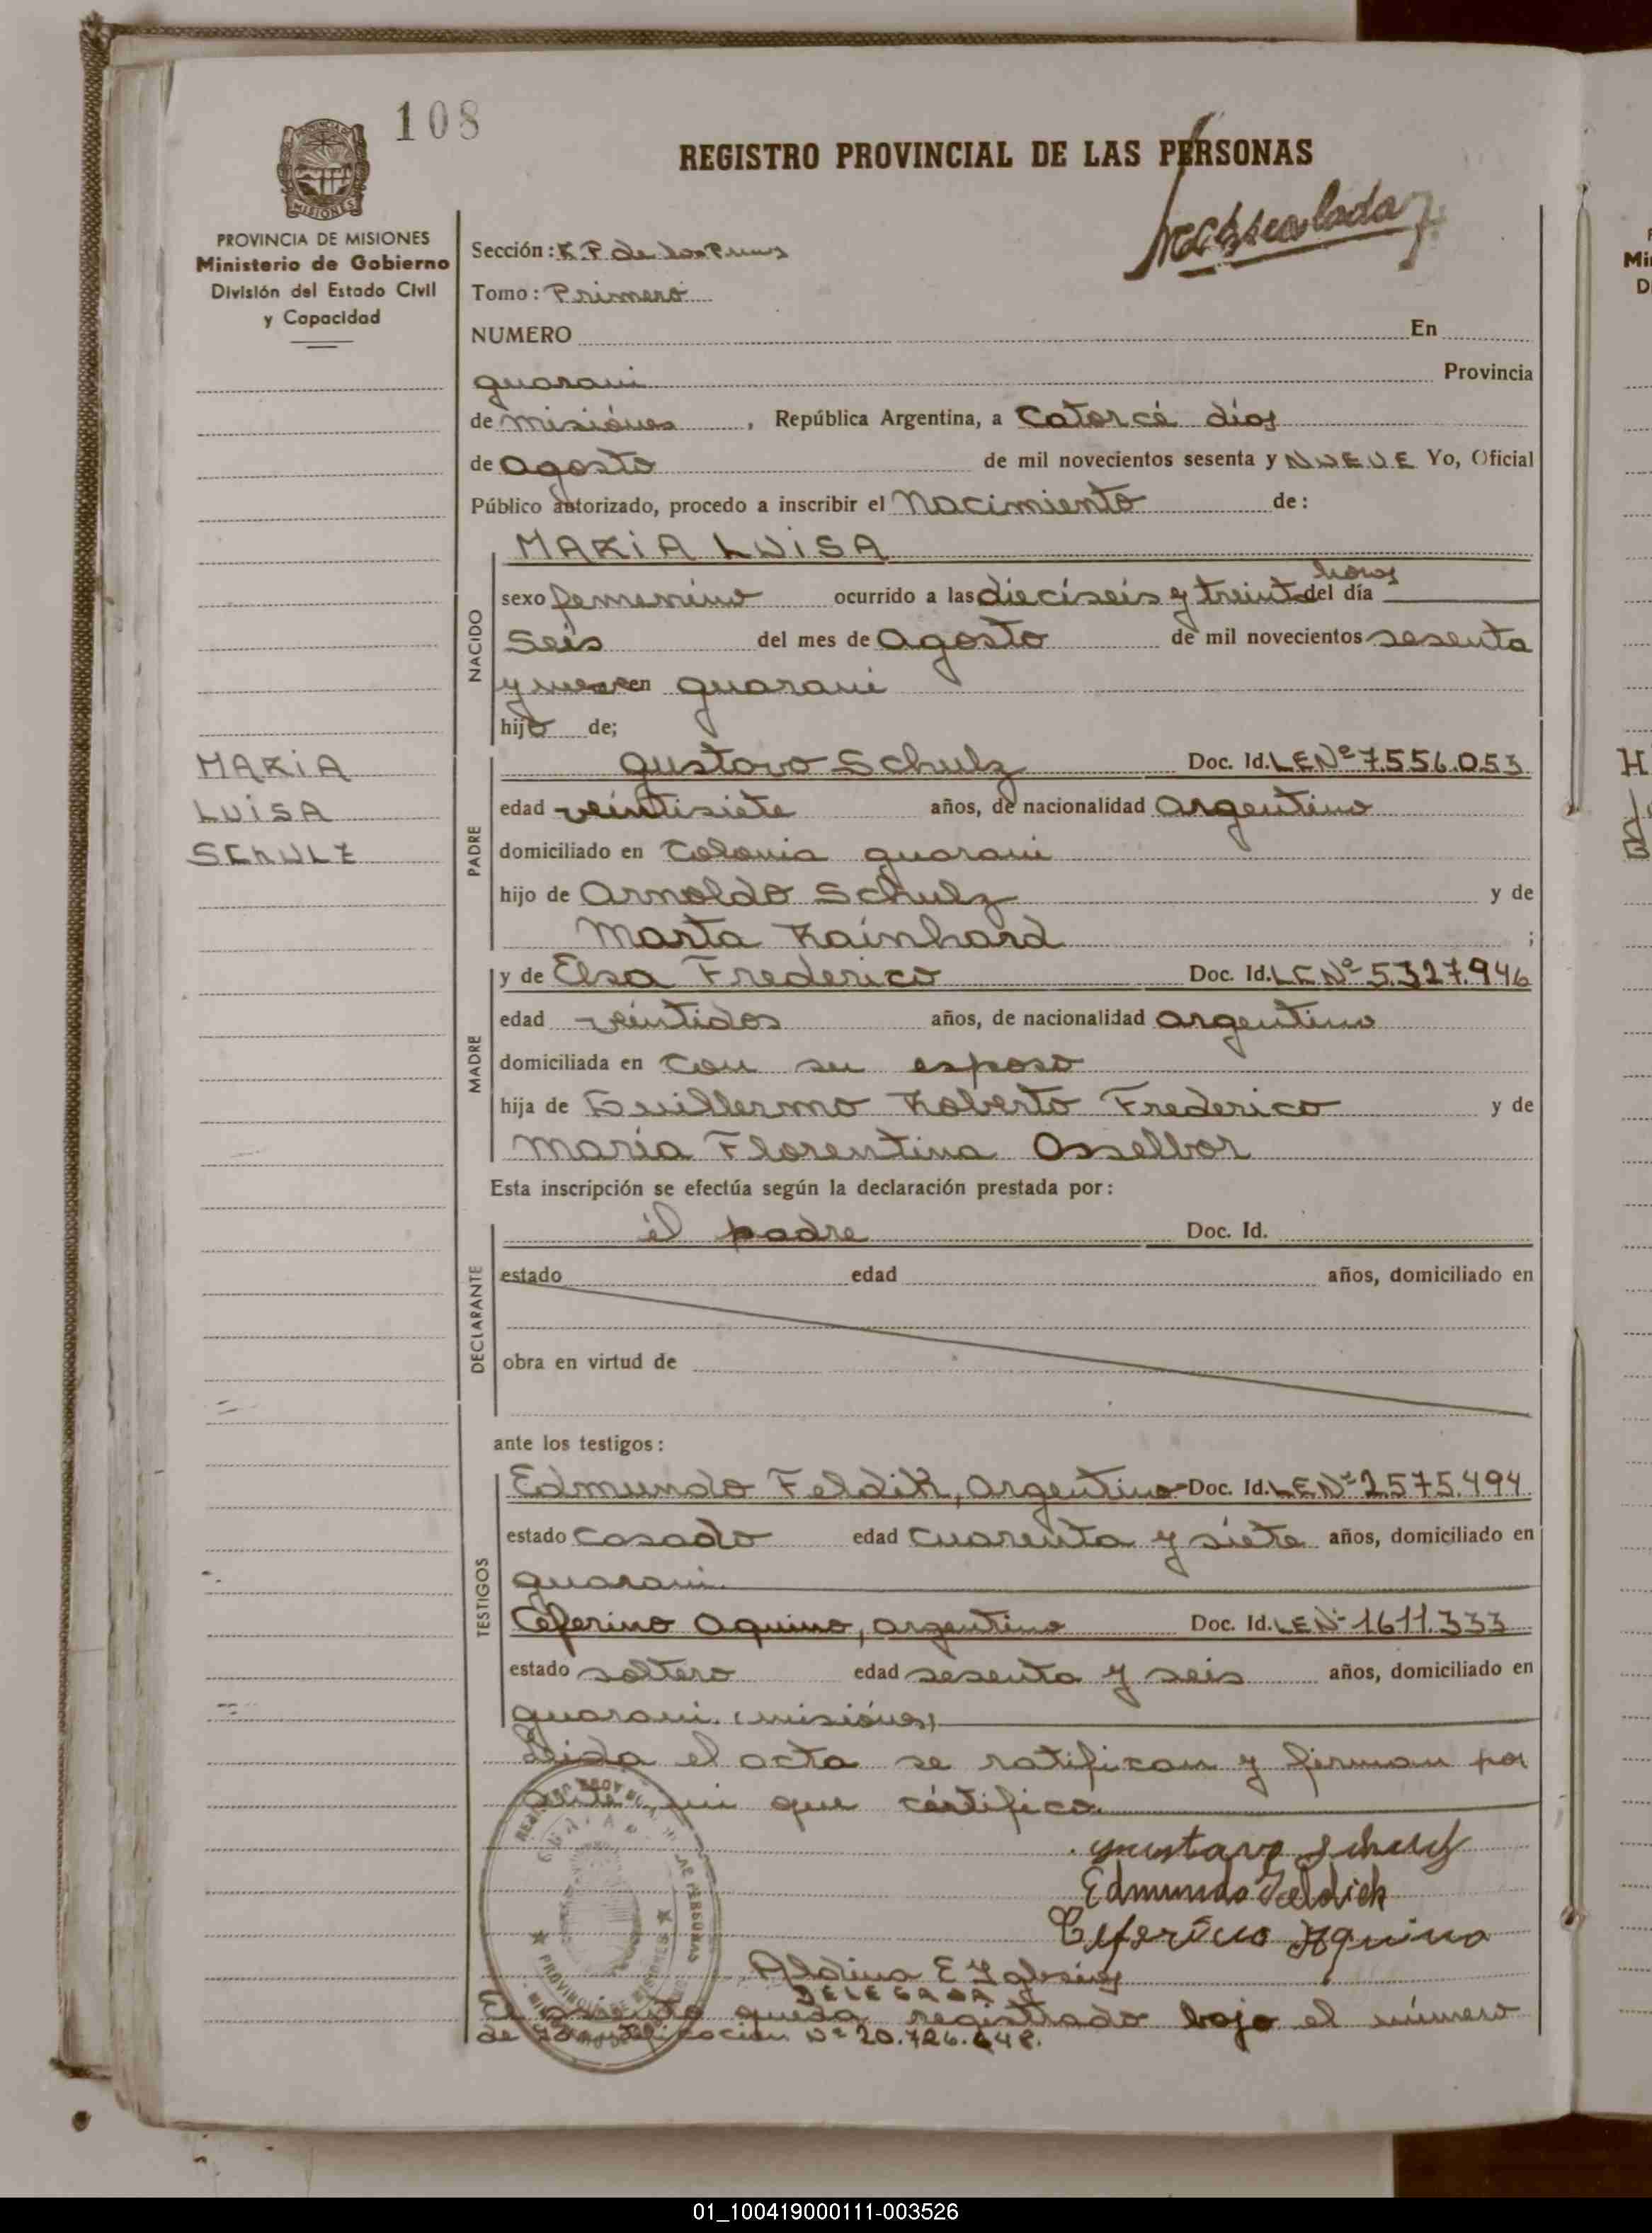 108
REGISTRO PROVINCIAL DE LAS PERSONAS
MISIONES
PROVINCIA DE MISIONES
Ministerio de Gobierno
División del Estado Civil
y Capacidad
Sección: R P de las
Tomo: Primero
NUMERO En
guarani Provincia
de misiónes, República Argentina, a Catorcé días
de agosto de mil novecientos sesenta y NUEVE Yo, Oficial
Público autorizado, procedo a inscribir el Nacimiento de:
MARIA LUISA
NACIDO
horas
sexo femenino ocurrido a las dieciseis y treinta del día
Seis del mes de agosto de mil novecientos sesenta
y nueve en guarani
hijo de;
MARIA
LUISA
SCHULZ
PADRE
gustavo Schulz Doc. Id. LENº 7.556.053
edad veintisiete años, de nacionalidad argentino
domiciliado en Colonia guarani
hijo de Arnoldo Schulz y de
Marta Rainhard ;
MADRE
y de Elsa Frederico Doc. Id. LCNº 5.327.946
edad veintidos años, de nacionalidad argentino
domiciliada en con su esposo
hija de Guillermo Roberto Frederico y de
María Florentina Osselbor
Esta inscripción se efectúa según la declaración prestada por:
DECLARANTE
él padre Doc. Id.
estado edad años, domiciliado en
obra en virtud de
ante los testigos:
TESTIGOS
Edmundo Feldik, argentino Doc. Id. LENº 2.575.494
estado casado edad cuarenta y siete años, domiciliado en
guarani.
Céferino Aquino, argentino Doc. Id. LENº 1611.333
estado soltero edad sesenta y seis años, domiciliado en
guarani. (misiónes)
Leida el acta se ratifican y firman por
ante mi que cértifico.
gustavo Schulz
Edmundo Feldick
Ceferino Aquino
Aldina E Yglesias
DELEGADA
El asiento queda registrado bajo el número
de identificación Nº 20.726.648.
01_100419000111-003526